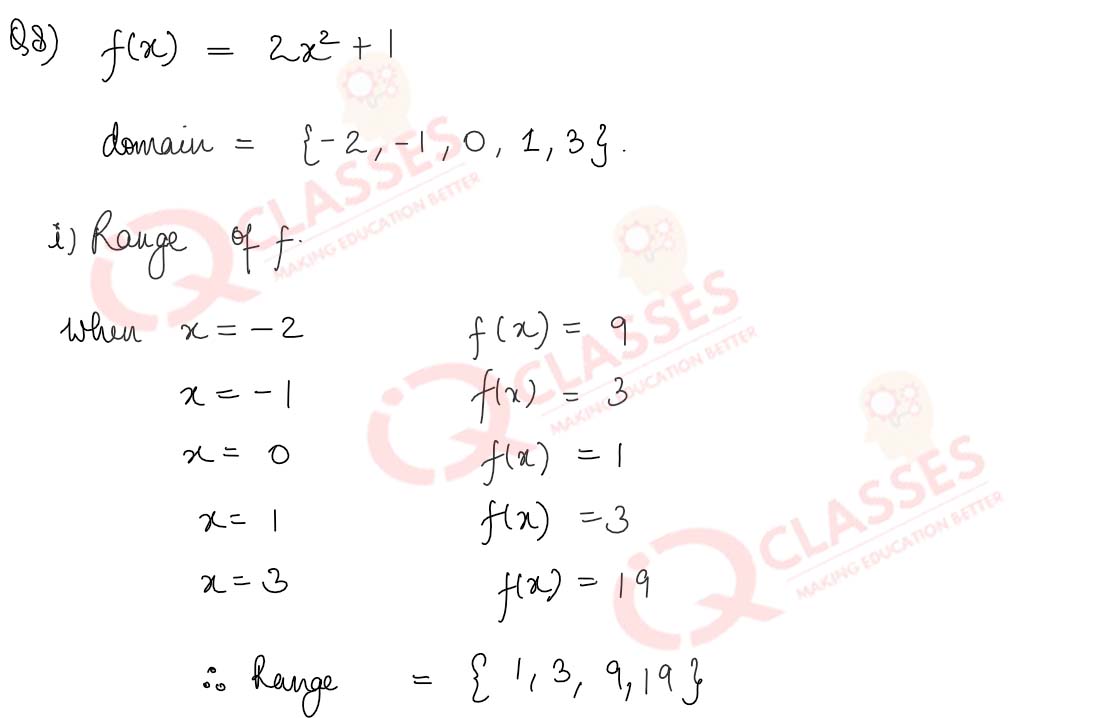 Q8) f(x) = 2x² + 1
domain = {-2, -1, 0, 1, 3}.
i) Range of f.
when x = -2 f(x) = 9
x = -1 f(x) = 3
x = 0 f(x) = 1
x = 1 f(x) = 3
x = 3 f(x) = 19
∴ Range = { 1, 3, 9, 19 }
iQ CLASSES
MAKING EDUCATION BETTER
iQ CLASSES
MAKING EDUCATION BETTER
iQ CLASSES
MAKING EDUCATION BETTER